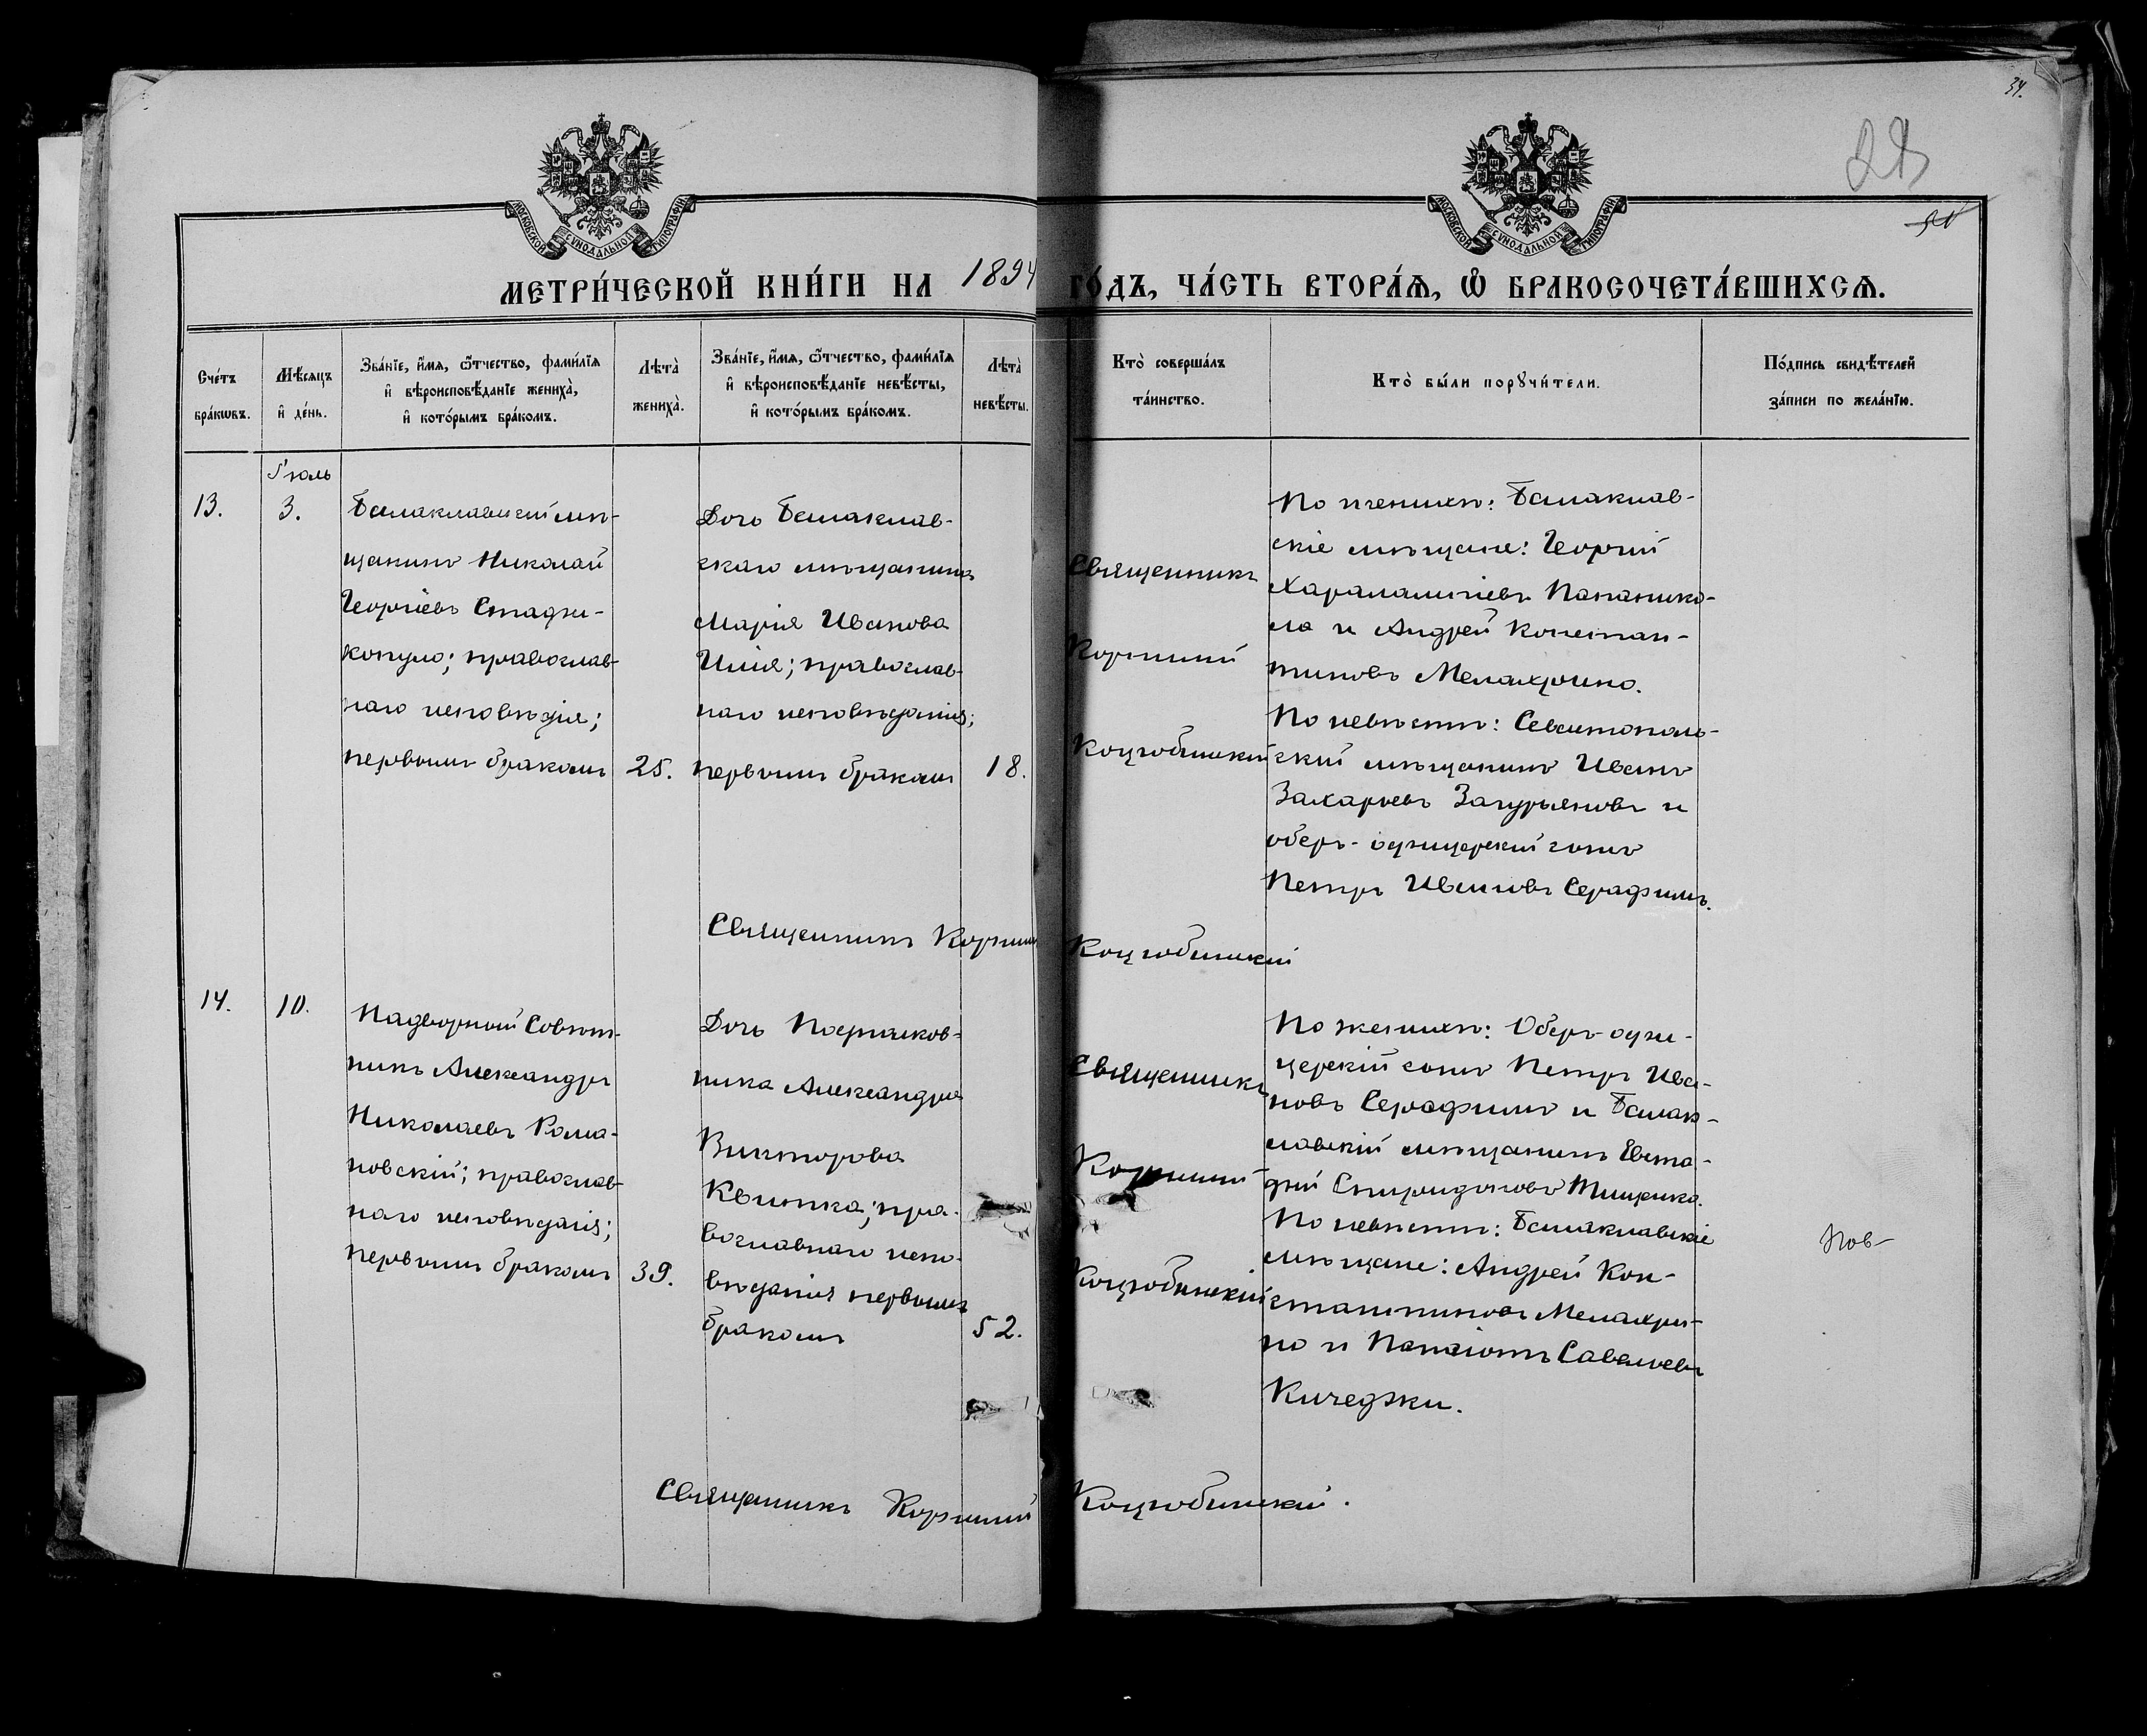 34.
28
МОСКОВСКОЙ СѴНОДАЛЬНОЙ ТИПОГРАФІИ
МОСКОВСКОЙ СѴНОДАЛЬНОЙ ТИПОГРАФІИ
МЕТРИ́ЧЕСКОЙ КНИ́ГИ НА 1894 ГО́ДЪ, ЧА́СТЬ ВТОРА́Ѧ, Ѡ҆ БРАКОСОЧЕТА́ВШИХСѦ.
Сче́тъ
бра́кѡвъ.
Мѣ́сѧцъ
и҆ де́нь.
Зва́нїе, и҆́мѧ, ѻ҆́тчество, фами́лїѧ
и҆ вѣроисповѣ́данїе жениха̀,
и҆ кото́рымъ бра́комъ.
Лѣта̀
жениха̀.
Зва́нїе, и҆́мѧ, ѻ҆́тчество, фами́лїѧ
и҆ вѣроисповѣ́данїе невѣ́сты,
и҆ кото́рымъ бра́комъ.
Лѣта̀
невѣ́сты.
Кто̀ соверша́лъ
та́инство.
Кто̀ бы́ли порꙋчи́тели.
По́дпись свидѣ́телей
за́писи по жела́нїю.
Іюль
13.
3.
Балаклавскій мѣ-
щанинъ Николай
Георгіевъ Стадзи-
копуло; православ-
наго исповѣдія;
первымъ бракомъ
25.
Дочь Балаклав-
скаго мѣщанина
Марія Иванова
Илія; православ-
наго исповѣданія;
первымъ бракомъ
18.
Священникъ
Корнилій
Коцюбинскій
По женихѣ: Балаклав-
скіе мѣщане: Георгій
Харалампіевъ Папанико-
ла и Андрей Констан-
тиновъ Мелахрино.
По невѣстѣ: Севастополь-
скій мѣщанинъ Иванъ
Захарьевъ Загурьяновъ и
оберъ-офицерскій сынъ
Петръ Ивановъ Серафимъ.
Священникъ Корнилій Коцюбинскій
14.
10.
Надворный Совѣт-
никъ Александръ
Николаевъ Рома-
новскій; православ-
наго исповѣданія;
первымъ бракомъ
39.
Дочь Полковника
Александра
Викторова
Квитка; пра-
вославнаго испо-
вѣданія первымъ
бракомъ
52.
Священникъ
Корнилій
Коцюбинскій
По женихѣ: Оберъ-офи-
церскій сынъ Петръ Ива-
новъ Серафимъ и Балак-
лавскій мѣщанинъ Евста-
фій Спиридоновъ Тищенко.
По невѣстѣ: Балаклавскіе
мѣщане: Андрей Кон-
стантиновъ Мелахри-
но и Панаіотъ Савельевъ
Кичеджи.
Нов
Священникъ Корнилій Коцюбинскій.